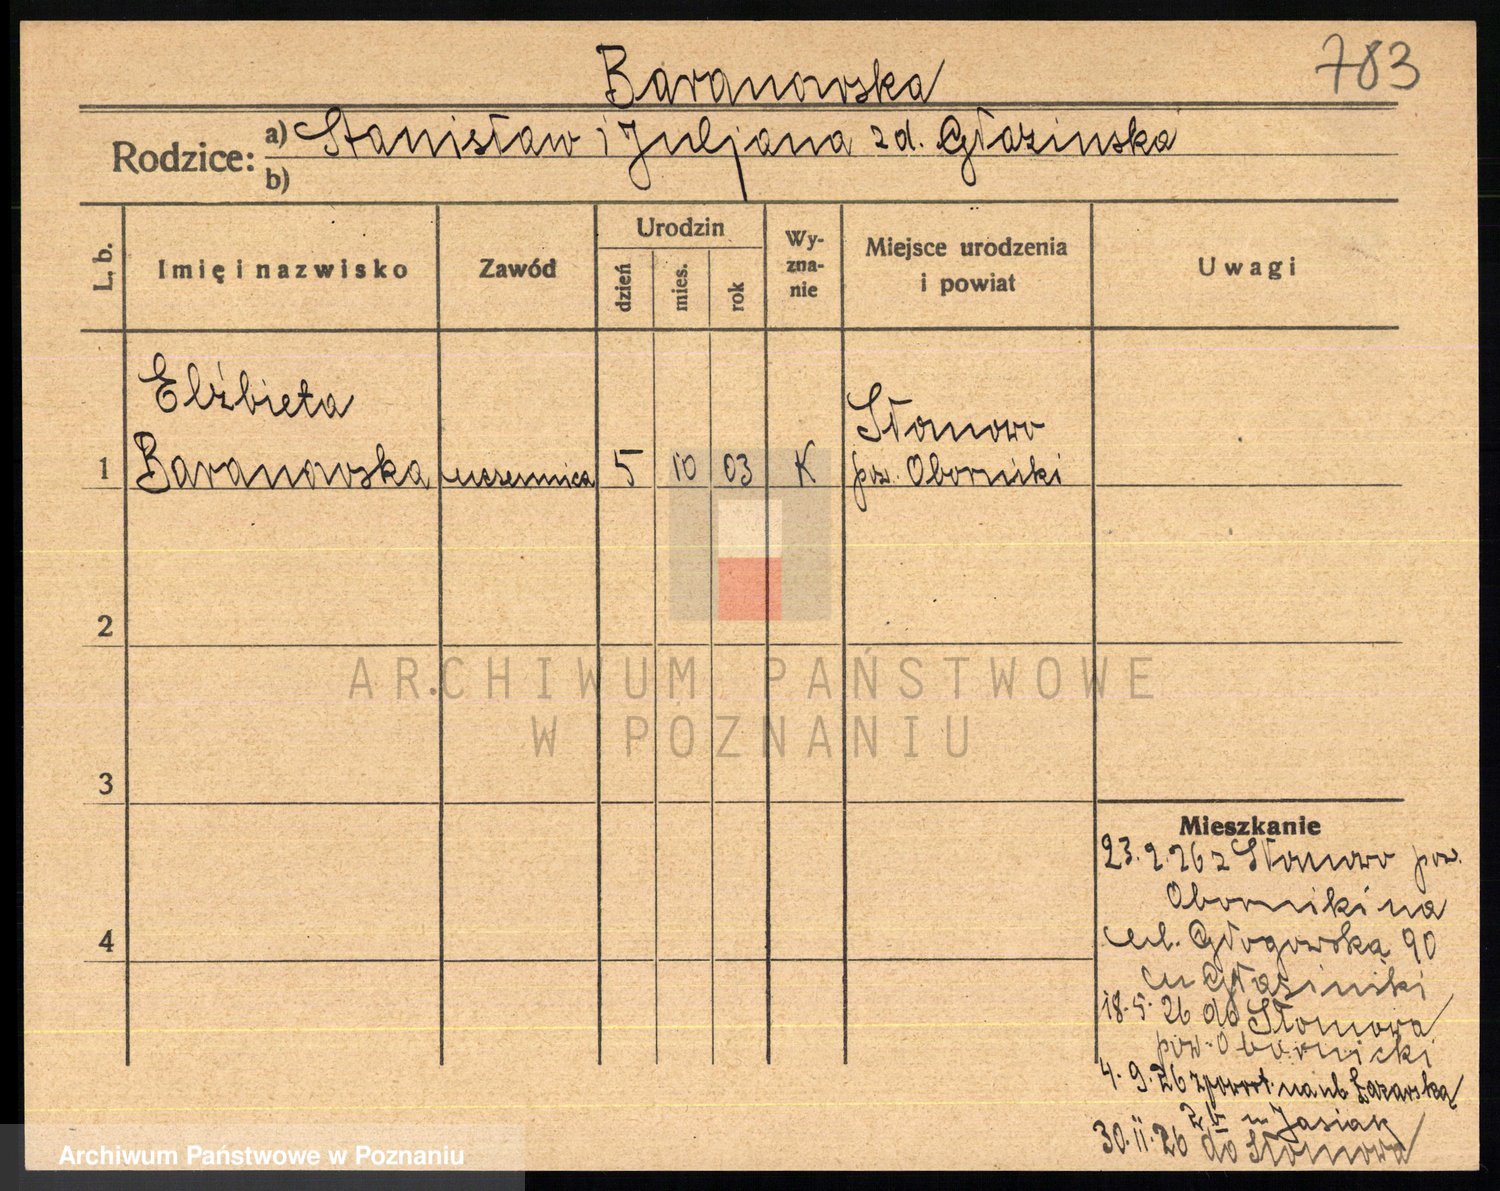 783
Baranowska
Rodzice: a) Stanisław i Juljana z d. Głazinska
b)
L. b.
Imię i nazwisko
Zawód
Urodzin
dzień
mies.
rok
Wy-
zna-
nie
Miejsce urodzenia
i powiat
Uwagi
Elżbieta
Słonowo
1 Baranowska uczennica 5 10 03 K pow. Oborniki
2
ARCHIWUM PAŃSTWOWE
W POZNANIU
3
Mieszkanie
23. 2. 26 z Słonowo pow.
Oborniki na
4
ul. Głogowską 90
u Głazinski
18. 5. 26 do Słonowa
pow. Obornicki
4. 9. 26 z powrot. na ul. Łazarską
2b u Jasiak
30. 11. 26 do Słonowa
Archiwum Państwowe w Poznaniu